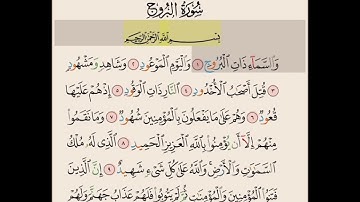 سُورَةُ البُرُوجِ
بِسْمِ اللَّهِ الرَّحْمَٰنِ الرَّحِيمِ
وَالسَّمَاءِ ذَاتِ الْبُرُوجِ ١ وَالْيَوْمِ الْمَوْعُودِ ٢ وَشَاهِدٍ وَمَشْهُودٍ
٣ قُتِلَ أَصْحَابُ الْأُخْدُودِ ٤ النَّارِ ذَاتِ الْوَقُودِ ٥ إِذْ هُمْ عَلَيْهَا
قُعُودٌ ٦ وَهُمْ عَلَىٰ مَا يَفْعَلُونَ بِالْمُؤْمِنِينَ شُهُودٌ ٧ وَمَا نَقَمُوا
مِنْهُمْ إِلَّا أَنْ يُؤْمِنُوا بِاللَّهِ الْعَزِيزِ الْحَمِيدِ ٨ الَّذِي لَهُ مُلْكُ
السَّمَاوَاتِ وَالْأَرْضِ وَاللَّهُ عَلَىٰ كُلِّ شَيْءٍ شَهِيدٌ ٩ إِنَّ الَّذِينَ
فَتَنُوا الْمُؤْمِنِينَ وَالْمُؤْمِنَاتِ ثُمَّ لَمْ يَتُوبُوا فَلَهُمْ عَذَابُ جَهَنَّمَ وَلَهُمْ